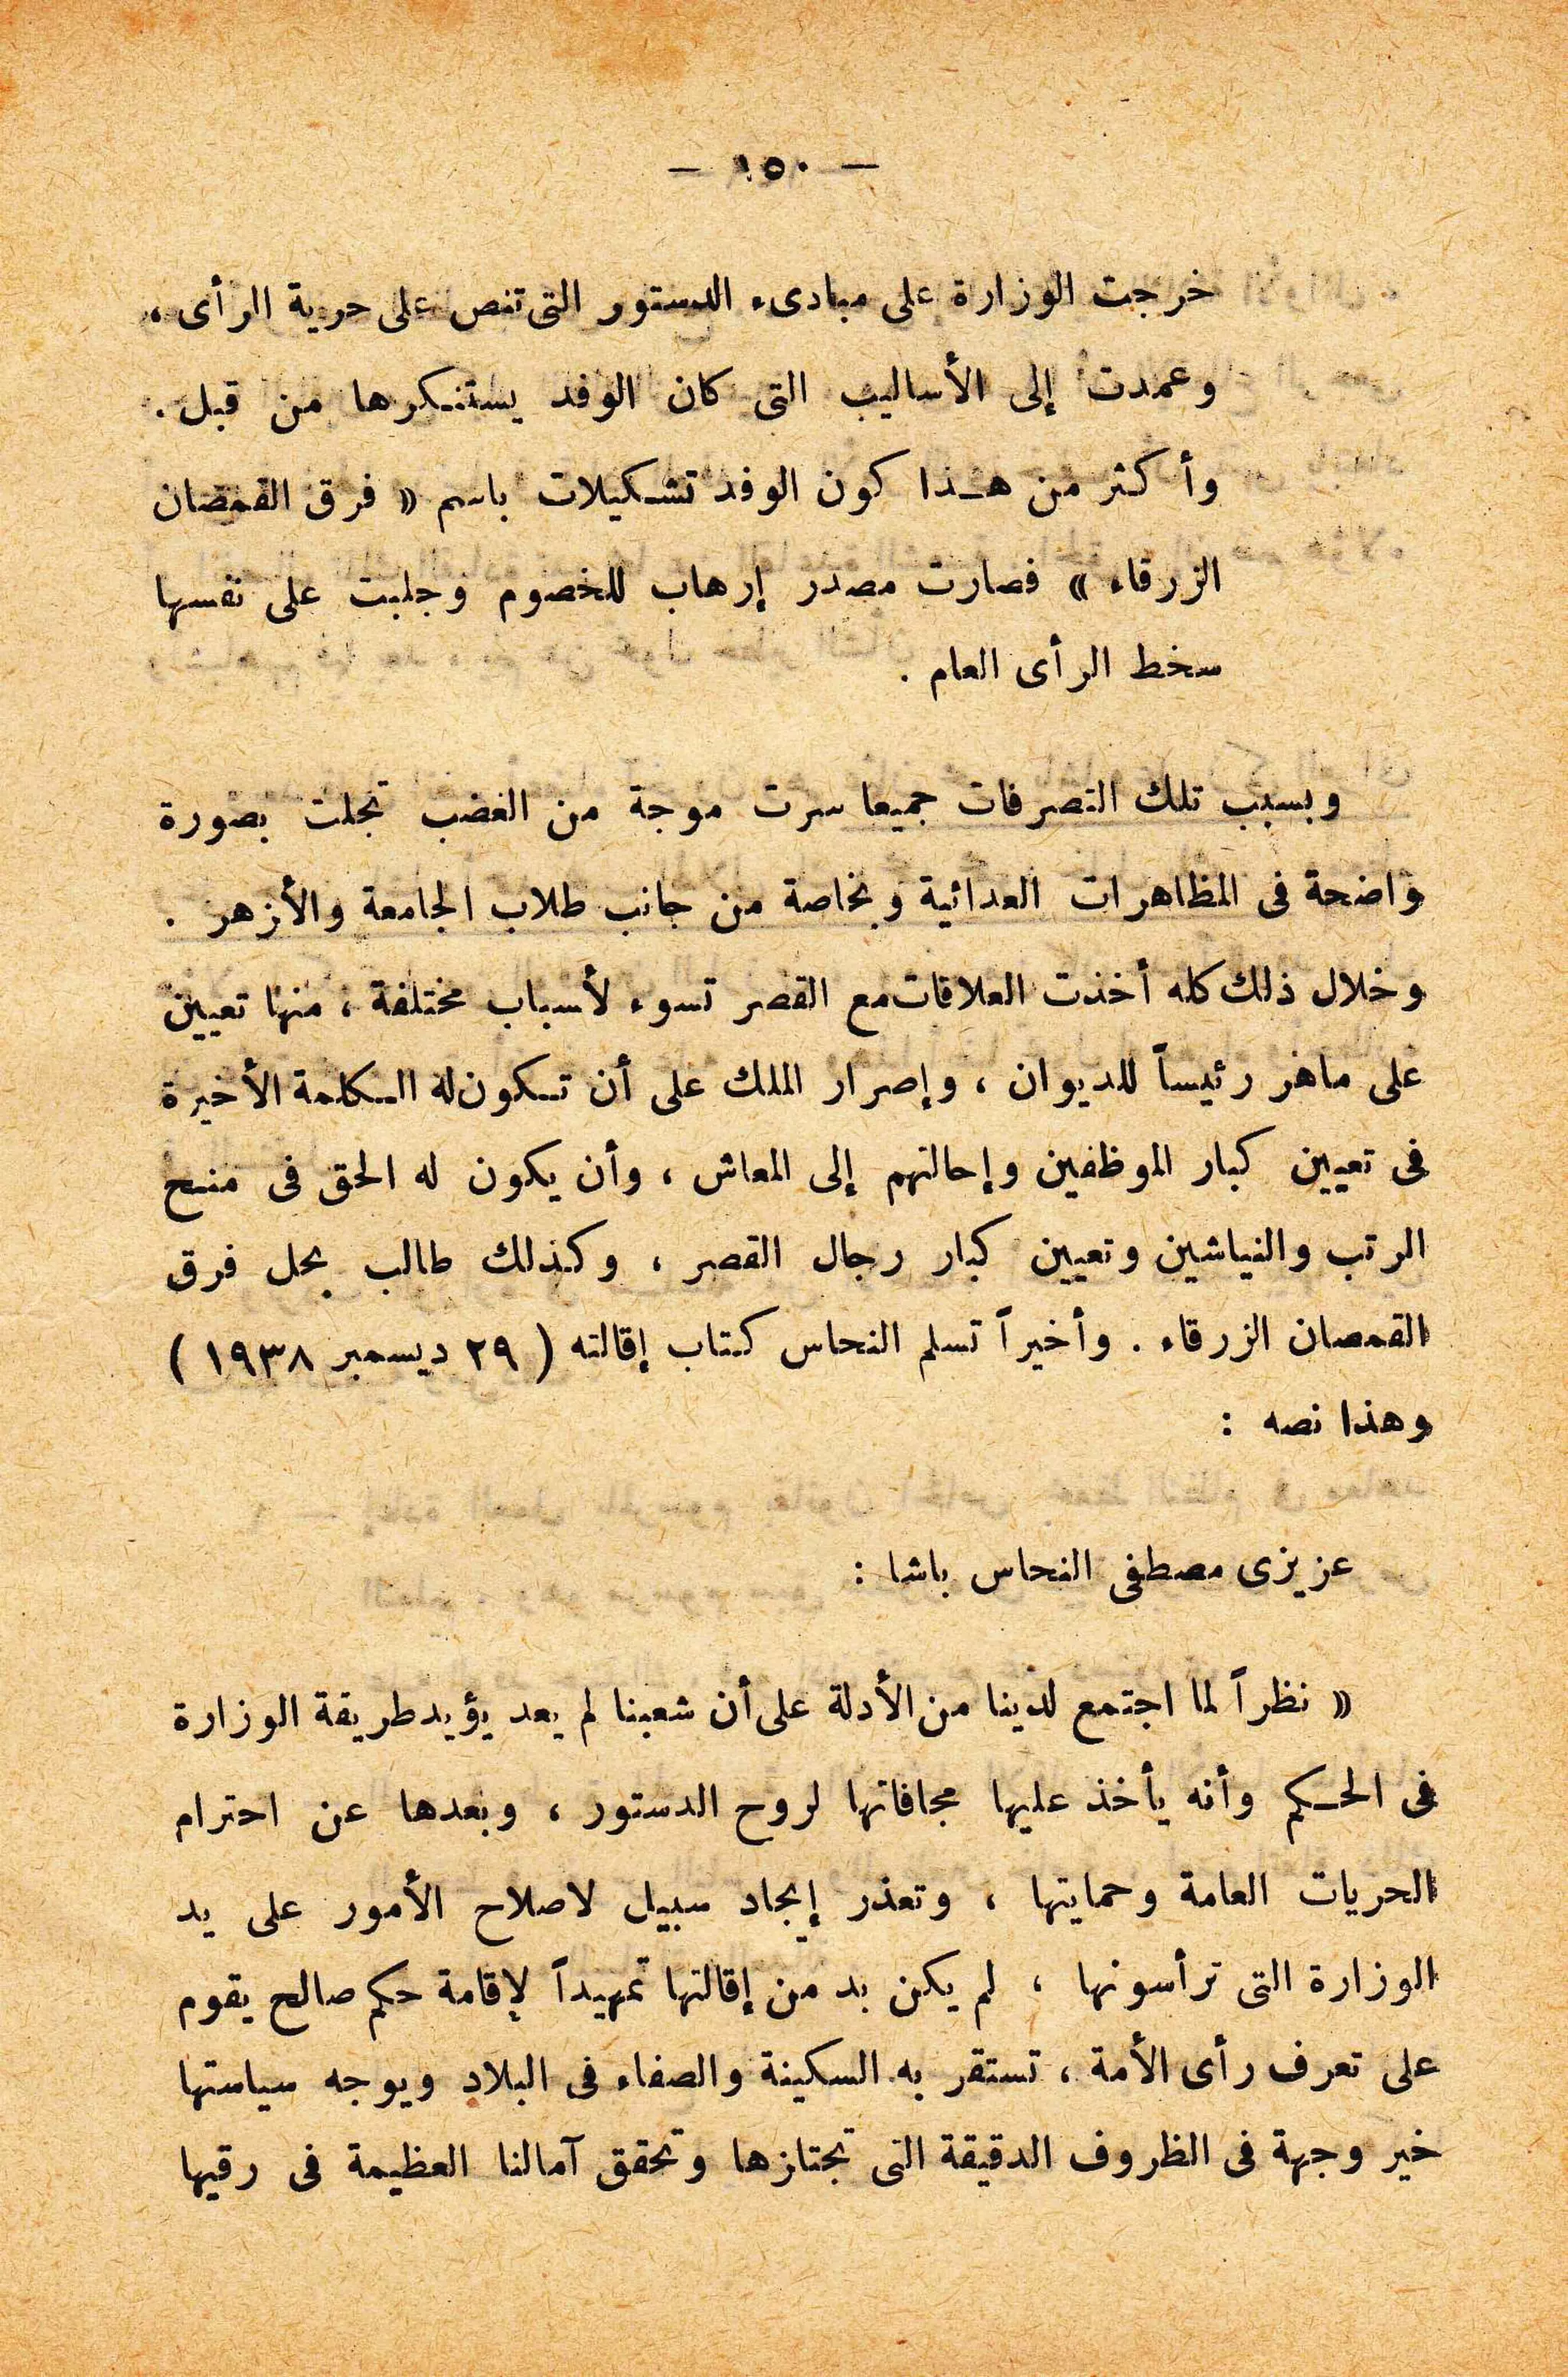 — ١٥٠ —
خرجت الوزارة على مبادىء الدستور التى تنص على حرية الرأى ،
وعمدت إلى الأساليب التى كان الوفد يستنكرها من قبل .
وأكثر من هذا كون الوفد تشكيلات باسم « فرق القمصان
الزرقاء » فصارت مصدر إرهاب للخصوم وجلبت على نفسها
سخط الرأى العام .
وبسبب تلك التصرفات جميعا سرت موجة من الغضب تجلت بصورة
واضحة فى المظاهرات العدائية وبخاصة من جانب طلاب الجامعة والأزهر .
وخلال ذلك كله أخذت العلاقات مع القصر تسوء لأسباب مختلفة ، منها تعيين
على ماهر رئيساً للديوان ، وإصرار الملك على أن تكون له الكلمة الأخيرة
فى تعيين كبار الموظفين وإحالتهم إلى المعاش ، وأن يكون له الحق فى منح
الرتب والنياشين وتعيين كبار رجال القصر ، وكذلك طالب بحل فرق
القمصان الزرقاء . وأخيراً تسلم النحاس كتاب إقالته ( ٢٩ ديسمبر ١٩٣٨ )
وهذا نصه :
عزيزى مصطفى النحاس باشا :
« نظراً لما اجتمع لدينا من الأدلة على أن شعبنا لم يعد يؤيد طريقة الوزارة
فى الحكم وأنه يأخذ عليها مجافاتها لروح الدستور ، وبعدها عن احترام
الحريات العامة وحمايتها ، وتعذر إيجاد سبيل لاصلاح الأمور على يد
الوزارة التى ترأسونها ، لم يكن بد من إقالتها تمهيداً لإقامة حكم صالح يقوم
على تعرف رأى الأمة ، تستقر به السكينة والصفاء فى البلاد ويوجه سياستها
خير وجهة فى الظروف الدقيقة التى تجتازها وتحقق آمالنا العظيمة فى رقيها